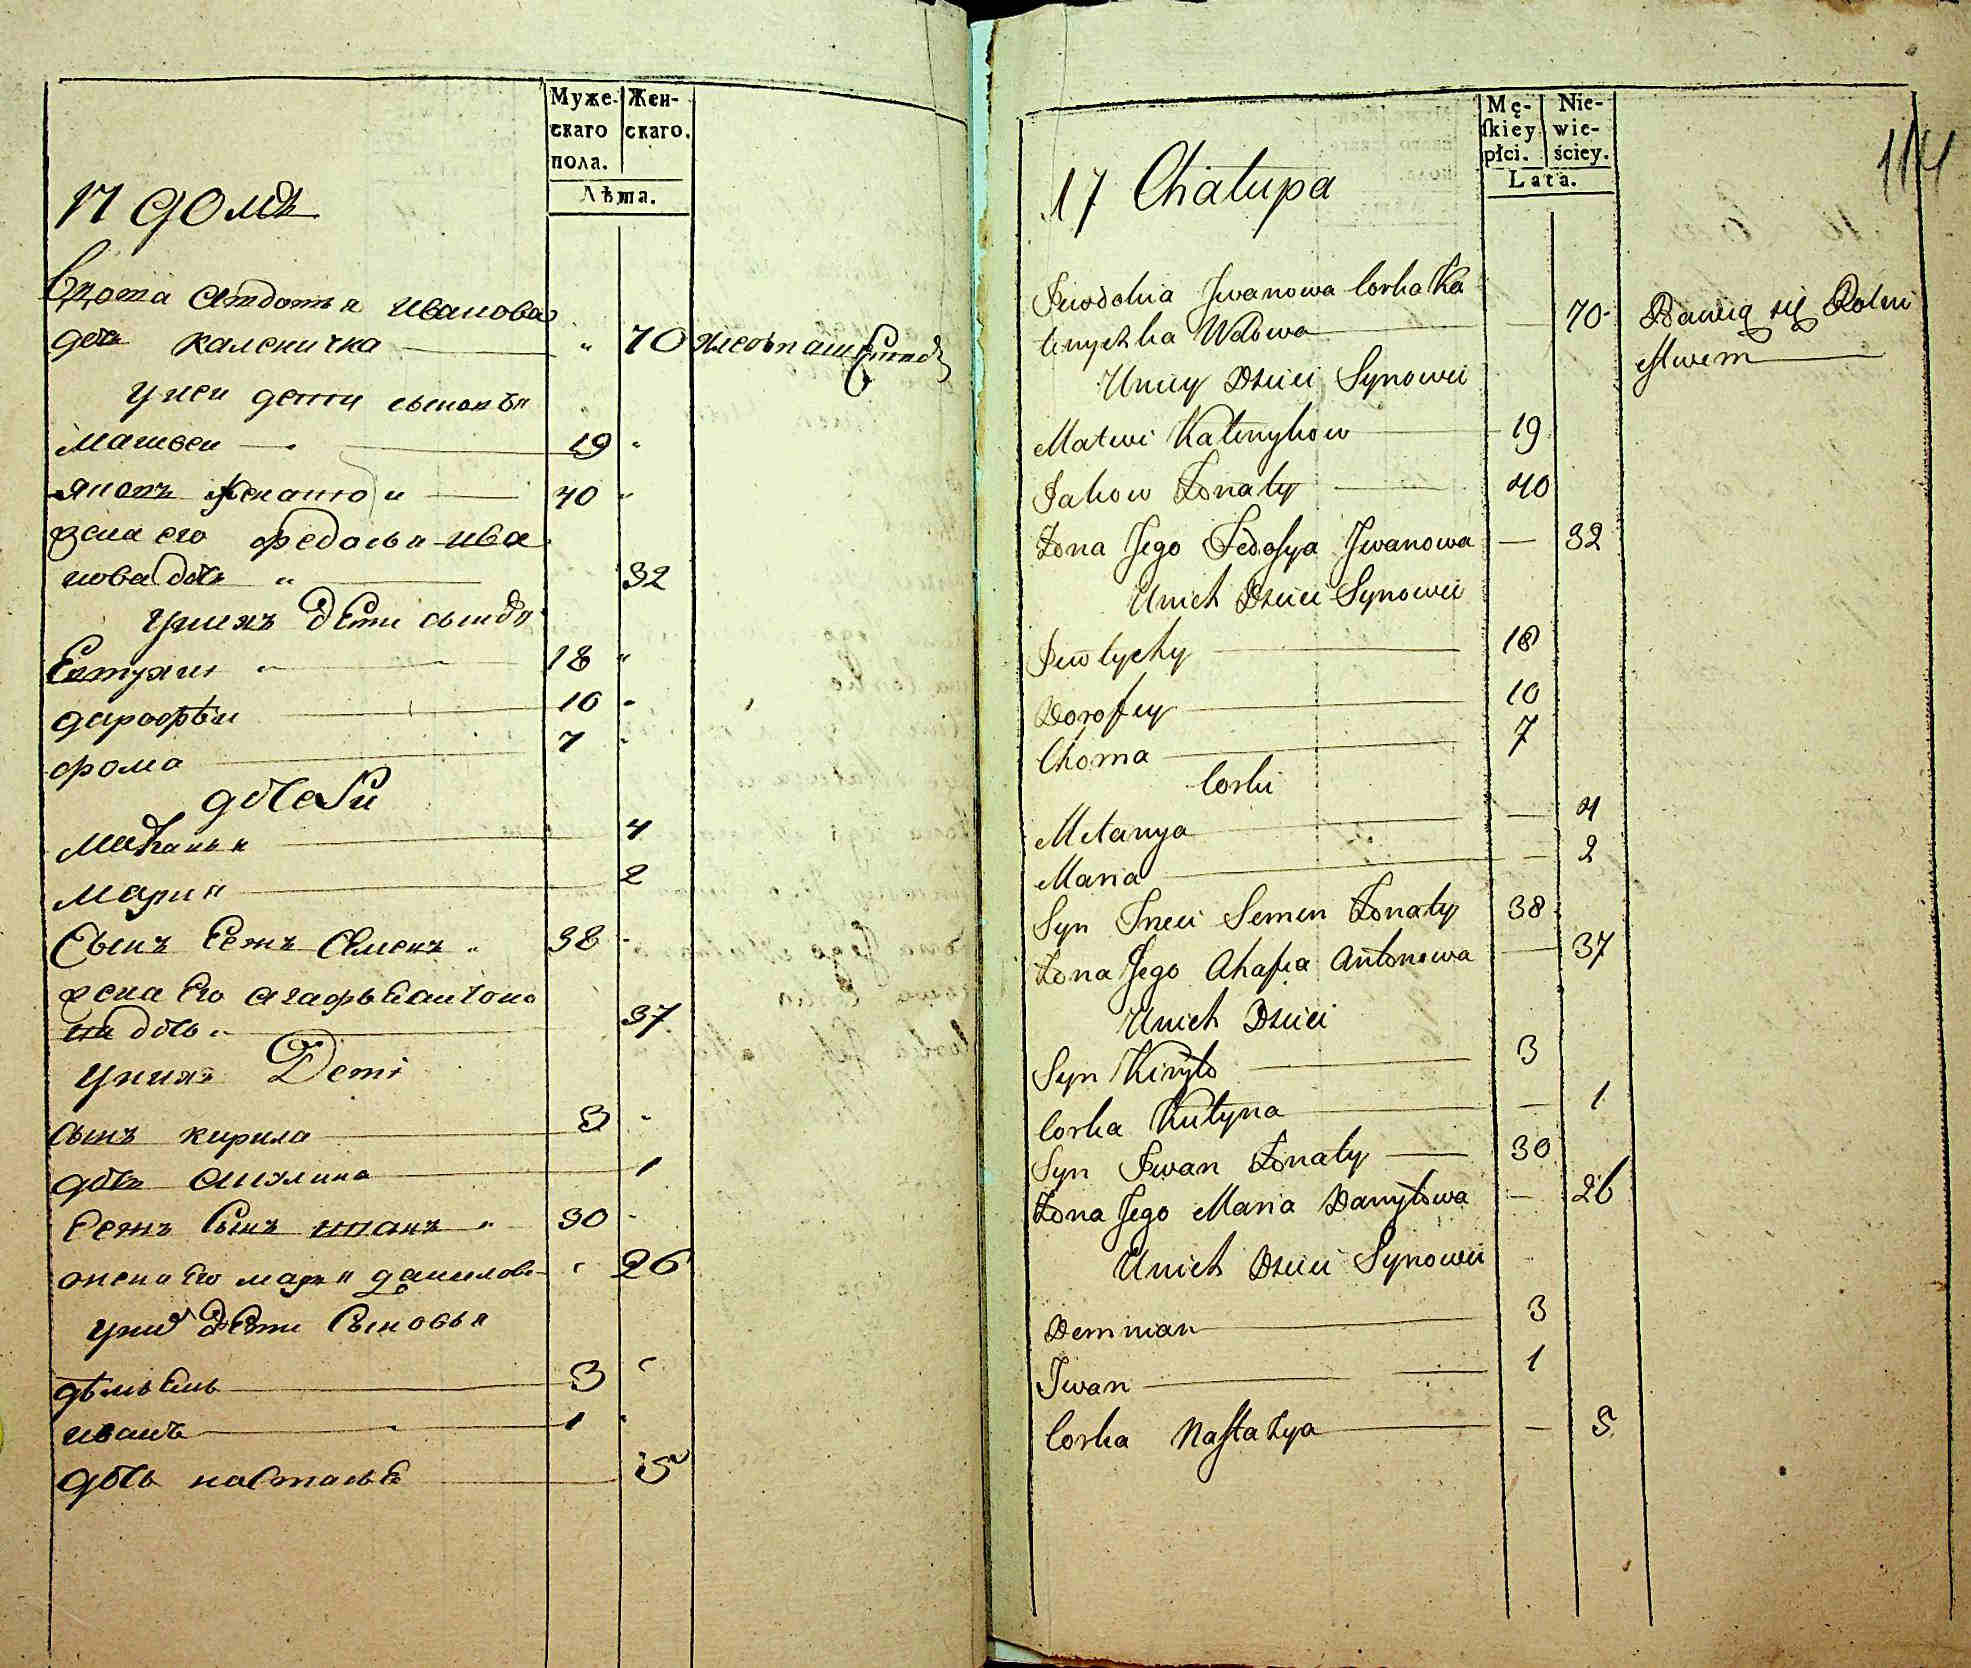 Муже-
скаго
пола.
Жен-
скаго.
Лѣта.
17 домъ
Вдова Авдотья Иванова
дочь каленичка 70
у неи дети сыновья
Матвеи 19
Яковъ женатои 40
жена его Федосья Ива
нова дочь 32
у нихъ дети
Евтухии 18
дарофѣи 10
фома 7
дочери
Маланья 4
Мария 2
Сынъ Семенъ 38
жена Его агафья антоно
дочь 37
у нихъ Дети
сынъ кирила 3
дочь 1
Сынъ иванъ 30
жена Его мария данилова 26
у них дети Сыновья
дѣмьянъ 3
иванъ 1
дочь настасья 5
Mę-
ſkiey
płci.
Nie-
wie-
ściey.
Lata.
114
17 Chałupa
Iwdokia Jwanowa Corka Ka
linyczka Wdowa 70 Bawią się Rolni
ctwem
Uniey Dzieci Synowie
Matwi Kalinykow 19
Jakow Żonaty 40
Żona Jego Fedosya Jwanowa 32
Unich Dzieci Synowie
Iwtychy 18
Dorofey 10
Choma 7
Corki
Melanya 4
Maria 2
Syn Semen Żonaty 38
Żona Jego Ahafia Antonowa 37
Unich Dzieci
Syn Kiryło 3
Corka 1
Syn Iwan Żonaty 30
Żona Jego Maria Danyłowa 26
Unich Dzieci Synowie
Demnian 3
Jwan 1
Corka Nastazya 5